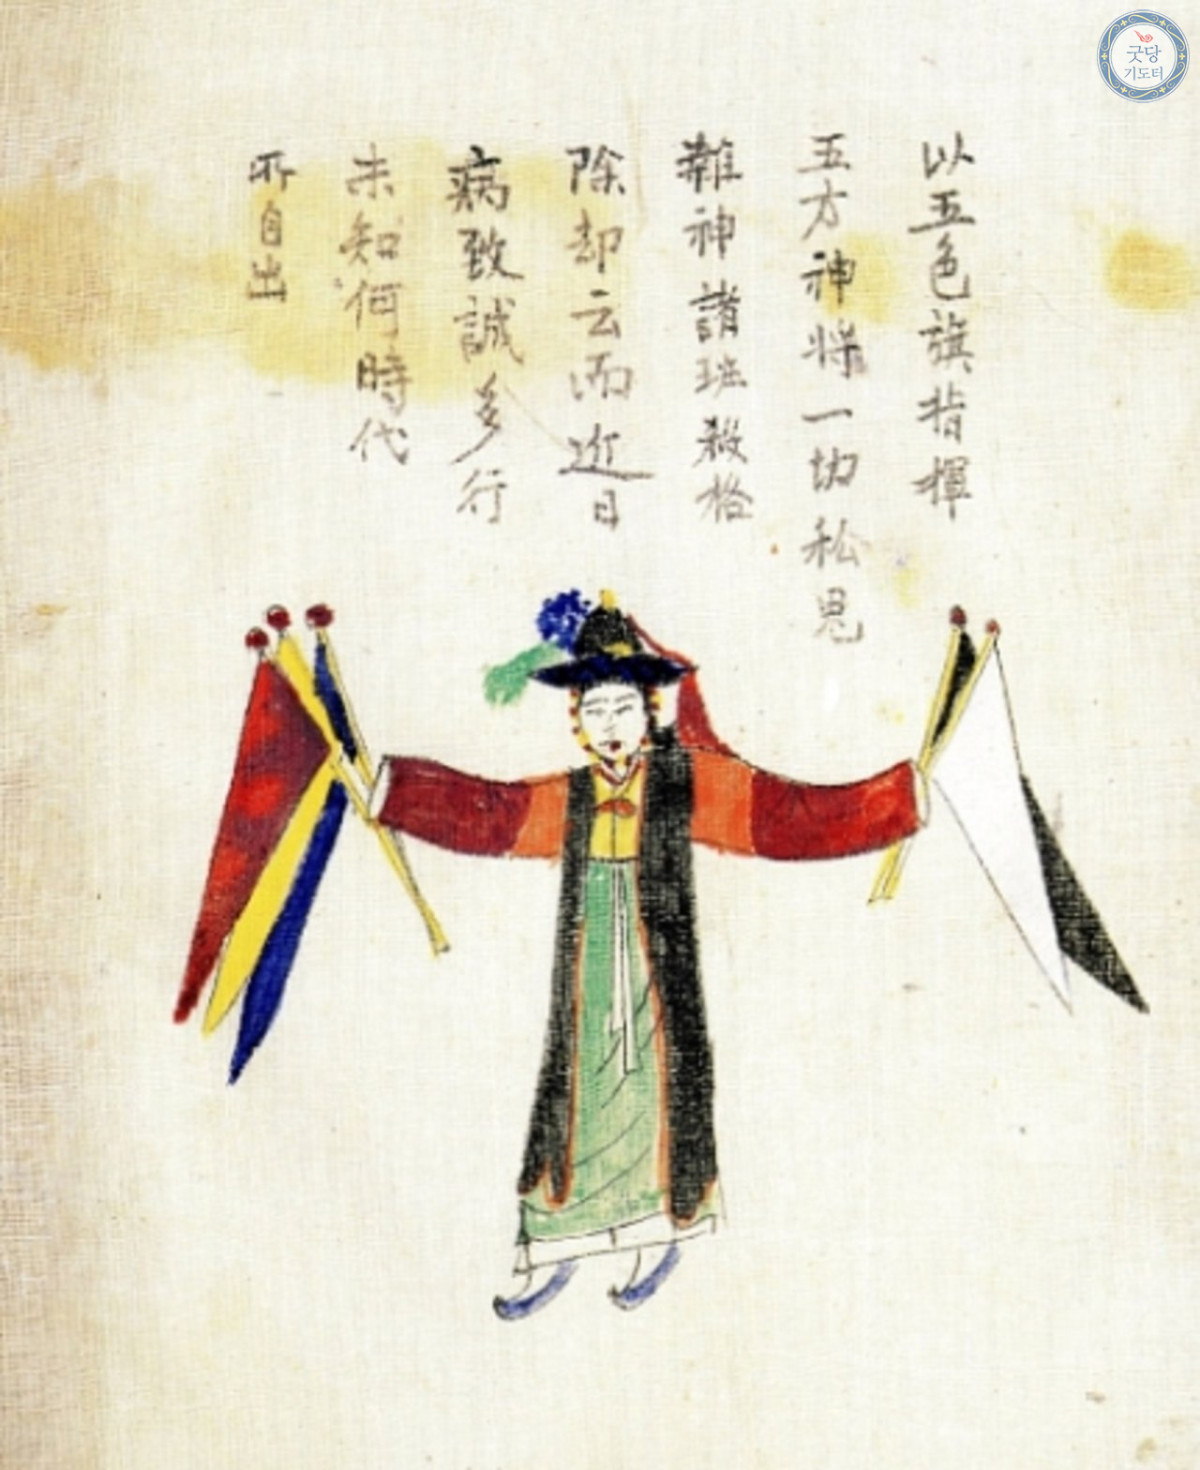 以五色旗指揮
五方神将一切私鬼
雜神諸班殺格
除却云而近日
病致誠多行
未知何時代
所自出
굿당
기도터